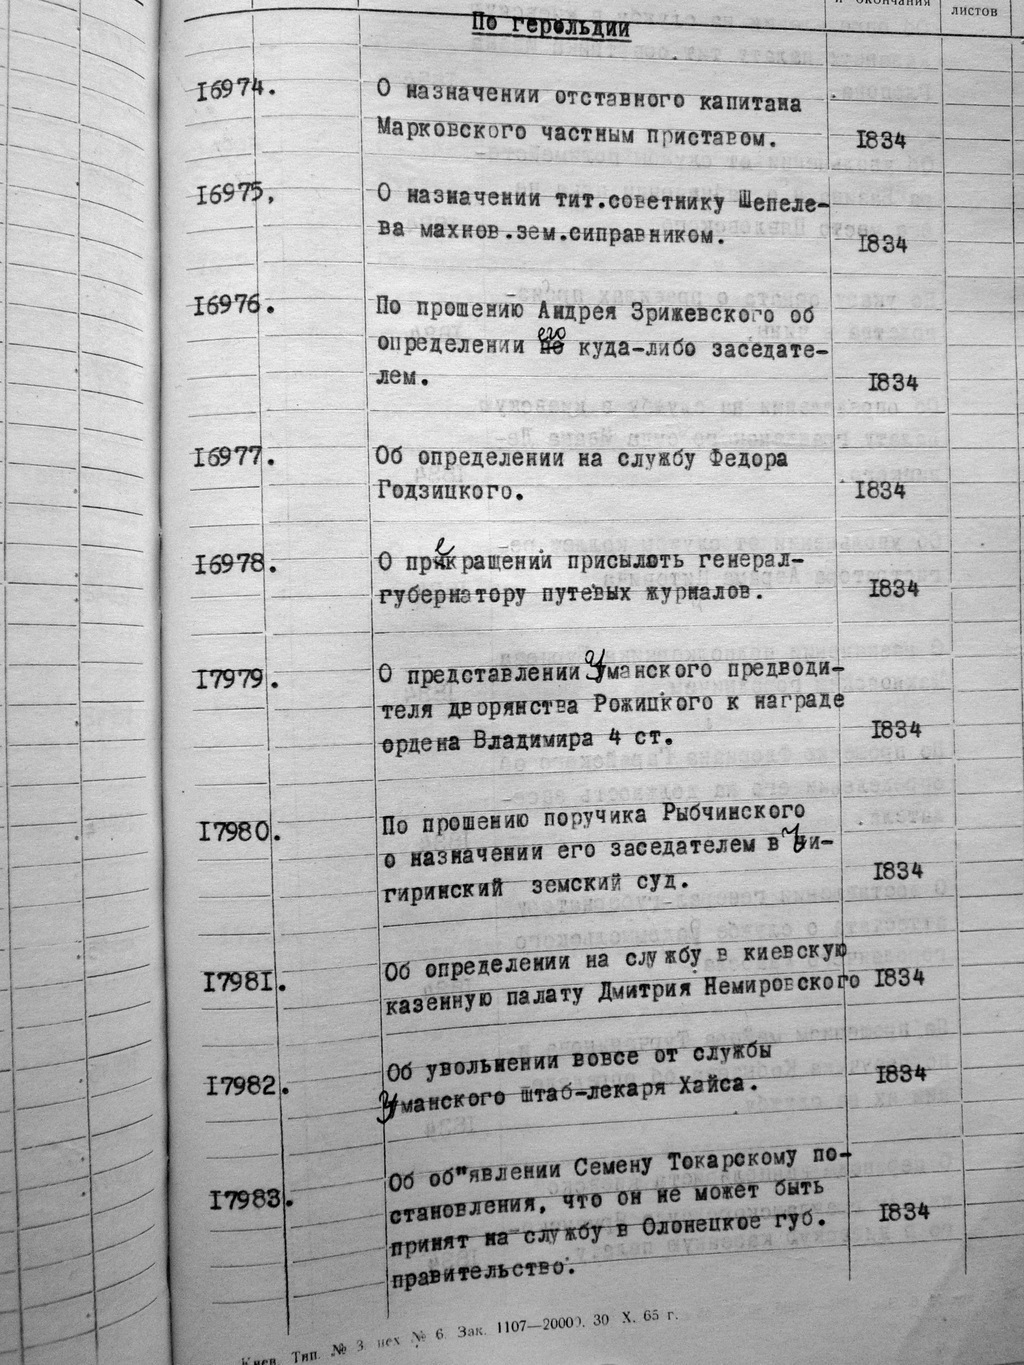 и окончания
листов
По герольдии
16974. О назначении отставного капитана
Марковского частным приставом. 1834
16975. О назначении тит.советнику Шепеле-
ва махнов.зем.сиправником. 1834
16976. По прошению Андрея Зрижевского об
определении его куда-либо заседате-
лем. 1834
16977. Об определении на службу Федора
Годзицкого. 1834
16978. О прекращений присылать генерал-
губернатору путевых журналов. 1834
17979. О представлении Уманского предводи-
теля дворянства Рожицкого к награде
ордена Владимира 4 ст. 1834
17980. По прошению поручика Рыбчинского
о назначении его заседателем в Чи-
гиринский земский суд. 1834
17981. Об определении на службу в киевскую
казенную палату Дмитрия Немировского 1834
17982. Об увольнении вовсе от службы
Уманского штаб-лекаря Хайса. 1834
17983. Об об"явлении Семену Токарскому по-
становления, что он не может быть
принят на службу в Олонецкое губ. 1834
правительство.
Киев. Тип. № 3 цех № 6. Зак. 1107—20000. 30 X. 65 г.